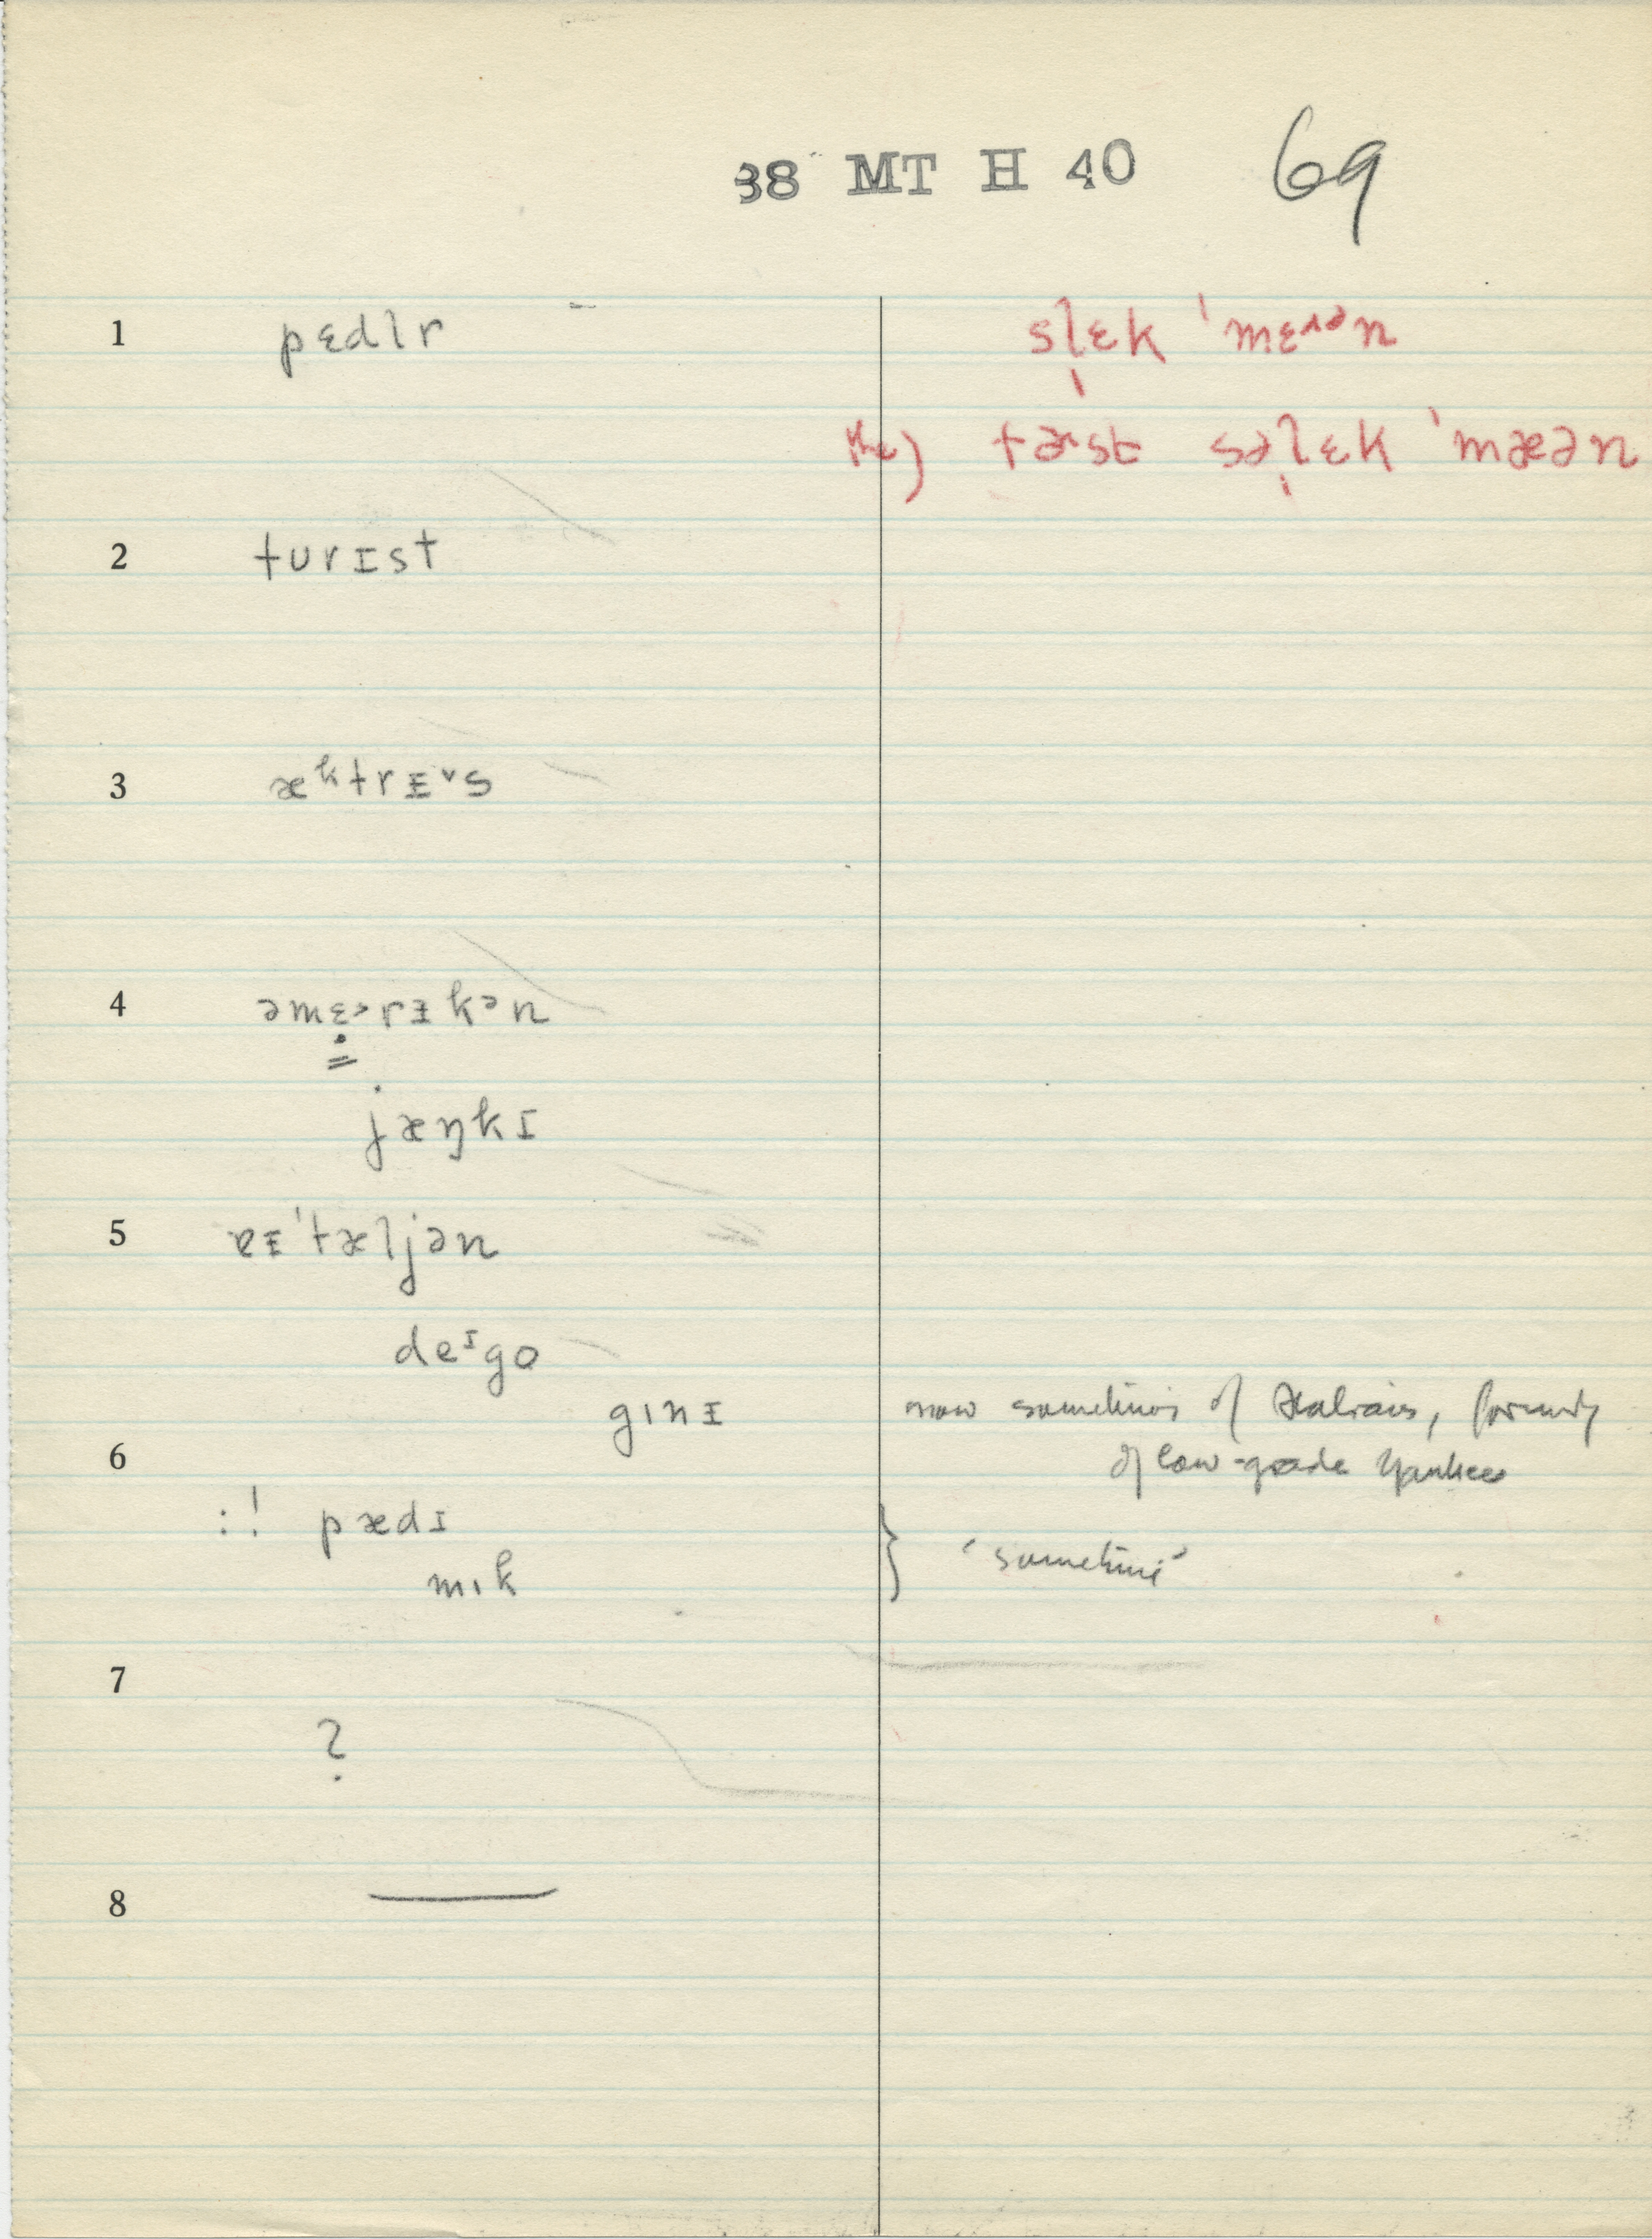 38 MT H 40 69
1 pɛdlr slɛk 'mɛ^ən
the) fɚst səlɛk 'mæən
2 turɪst
3 æᵏtrɪ˅s
4 əmɛ˃rɨkən
jæŋkɪ
5 ɐɪ'tæljən
deᶦgo
gɪnɪ now sometimes of Italians, formerly
6 of low-grade Yankees
:! pædɪ
mɪk } 'sometimes'
7
?
8 —